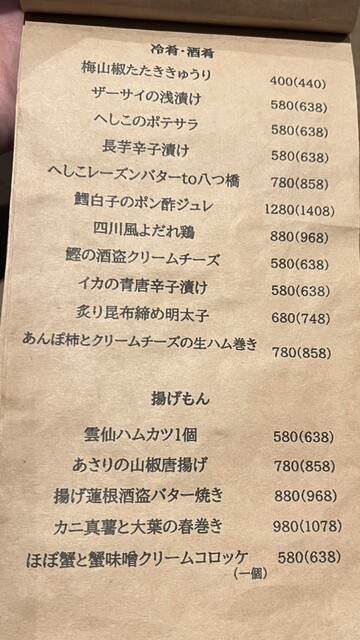 冷肴・酒肴
梅山椒たたききゅうり 400(440)
ザーサイの浅漬け 580(638)
へしこのポテサラ 580(638)
長芋辛子漬け 580(638)
へしこレーズンバターto八つ橋 780(858)
鱈白子のポン酢ジュレ 1280(1408)
四川風よだれ鶏 880(968)
鰹の酒盗クリームチーズ 580(638)
イカの青唐辛子漬け 580(638)
炙り昆布締め明太子 680(748)
あんぽ柿とクリームチーズの生ハム巻き 780(858)
揚げもん
雲仙ハムカツ1個 580(638)
あさりの山椒唐揚げ 780(858)
揚げ蓮根酒盗バター焼き 880(968)
カニ真薯と大葉の春巻き 980(1078)
ほぼ蟹と蟹味噌クリームコロッケ 580(638)
(一個)